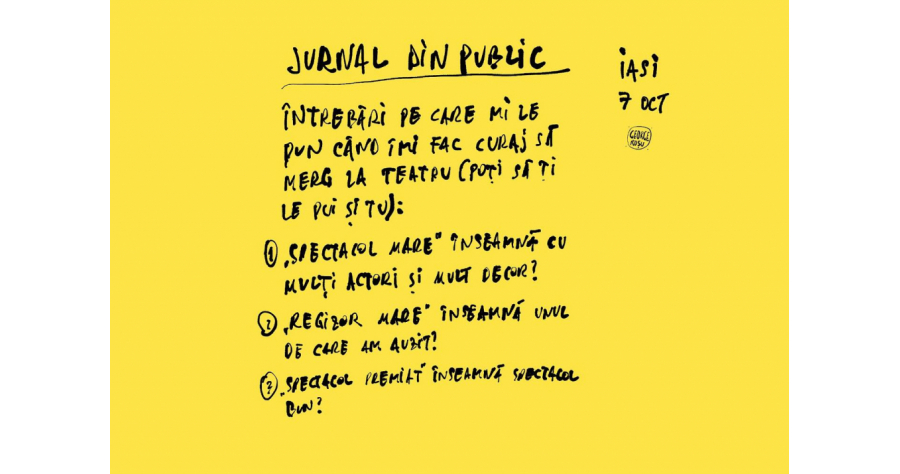 JURNAL DIN PUBLIC
IAȘI
7 OCT
ÎNTREBĂRI PE CARE MI LE
PUN CÂND ÎMI FAC CURAJ SĂ
MERG LA TEATRU (POȚI SĂ ȚI
LE PUI ȘI TU):
1 „SPECTACOL MARE" ÎNSEAMNĂ CU
MULȚI ACTORI ȘI MULT DECOR?
2 „REGIZOR MARE" ÎNSEAMNĂ UNUL
DE CARE AM AUZIT?
3 „SPECTACOL PREMIAT" ÎNSEAMNĂ SPECTACOL
BUN?